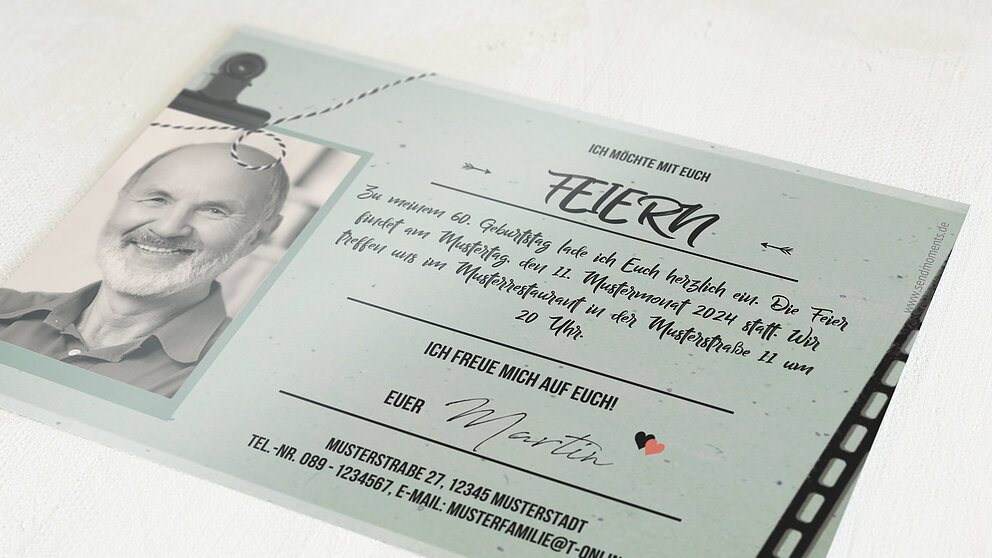 ICH MÖCHTE MIT EUCH
FEIERN
Zu meinem 60. Geburtstag lade ich Euch herzlich ein. Die Feier
findet am Mustertag, den 11. Mustermonat 2024 statt. Wir
treffen uns im Musterrestaurant in der Musterstraße 11 um
20 Uhr.
ICH FREUE MICH AUF EUCH!
EUER Martin
MUSTERSTRAßE 27, 12345 MUSTERSTADT
TEL.-NR. 089 - 1234567, E-MAIL: MUSTERFAMILIE@T-ONLIN
www.sendmoments.de